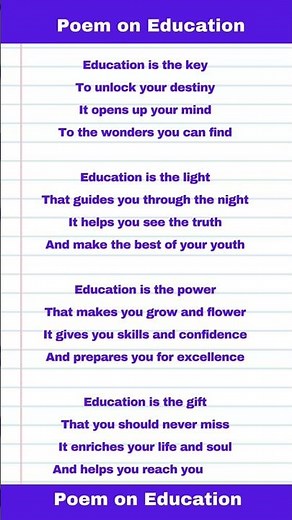 Poem on Education
Education is the key
To unlock your destiny
It opens up your mind
To the wonders you can find
Education is the light
That guides you through the night
It helps you see the truth
And make the best of your youth
Education is the power
That makes you grow and flower
It gives you skills and confidence
And prepares you for excellence
Education is the gift
That you should never miss
It enriches your life and soul
And helps you reach you
Poem on Education